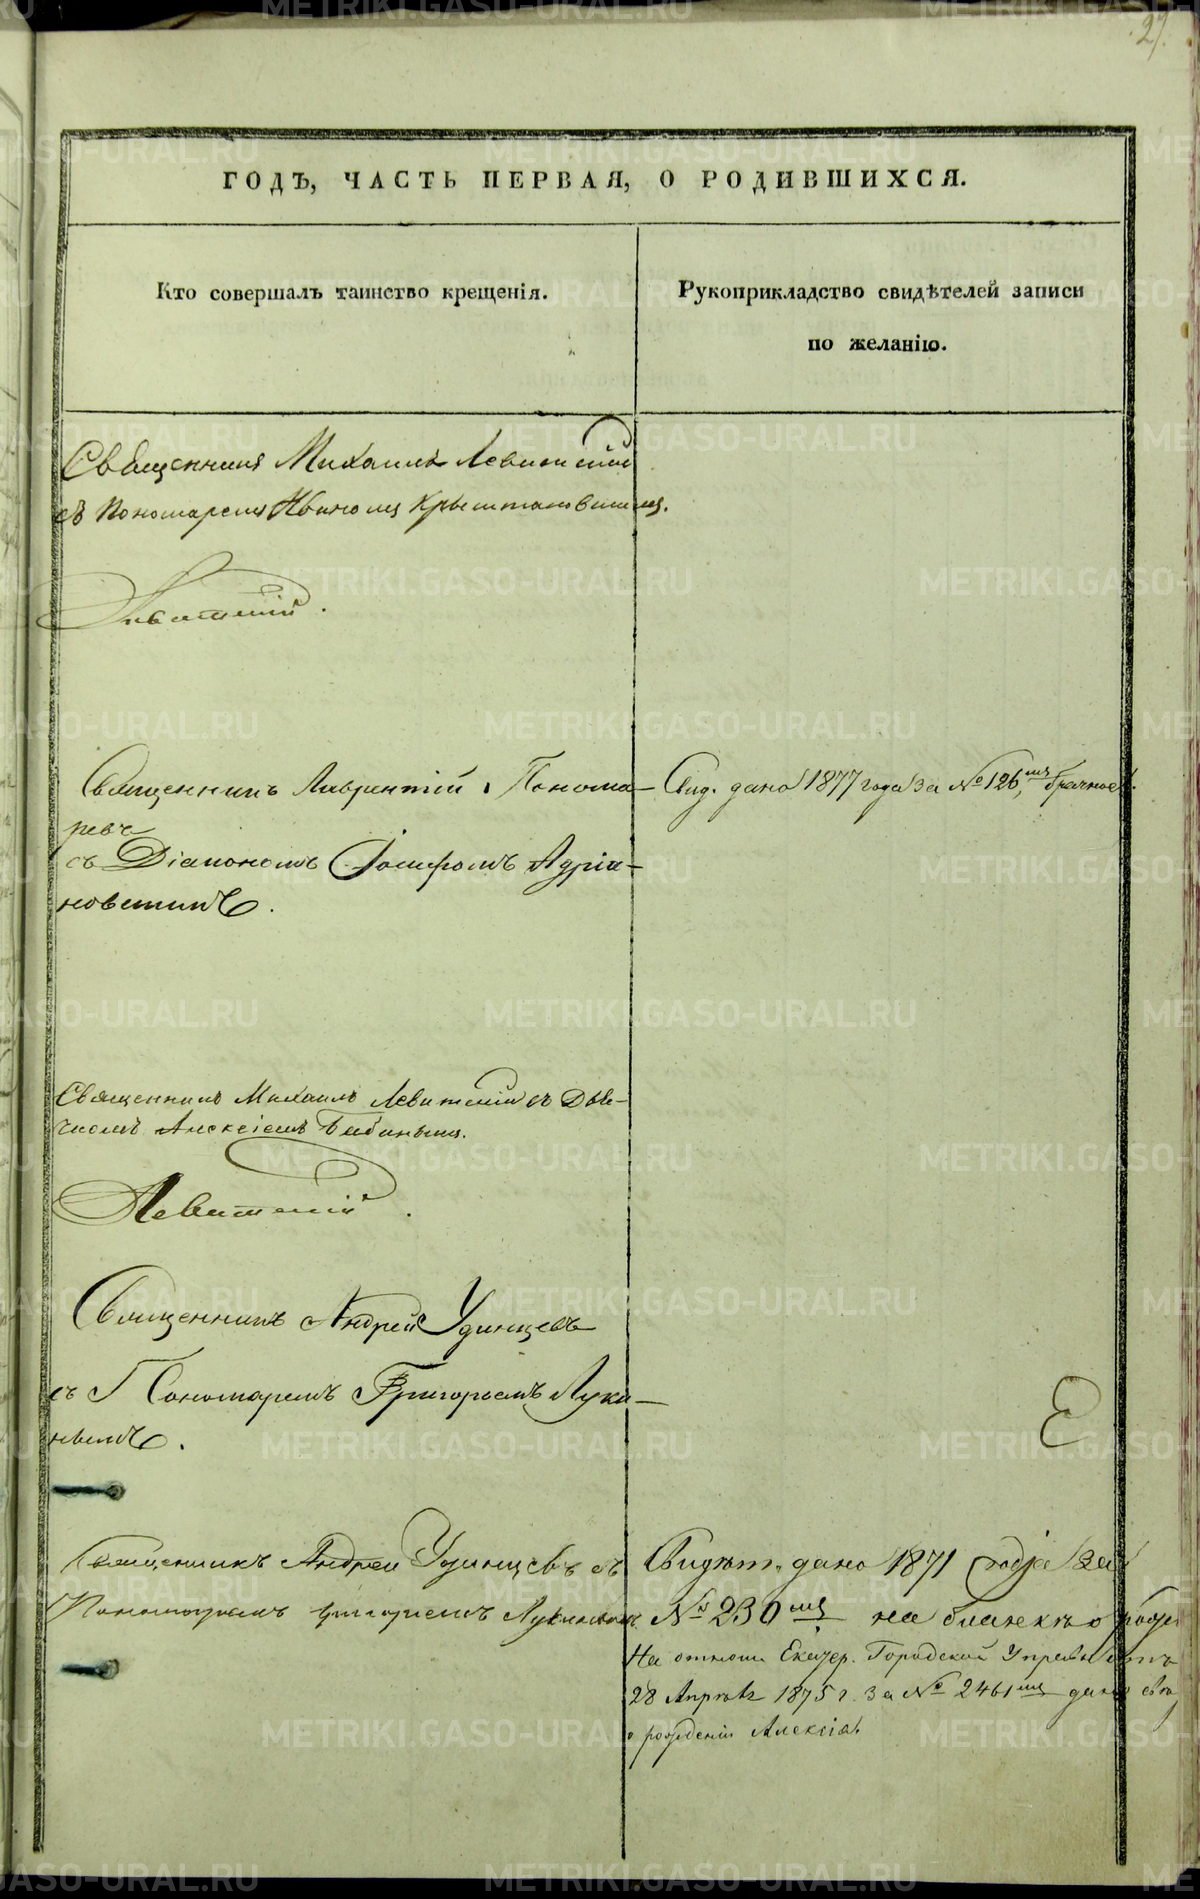 27.
ГОДЪ, ЧАСТЬ ПЕРВАЯ, О РОДИВШИХСЯ.
Кто совершалъ таинство крещенія.
Рукоприкладство свидѣтелей записи
по желанію.
Священникъ Михаилъ Левитскій
съ Пономаремъ Иваномъ Крыштановскимъ.
Левитскій.
Священникъ Лаврентій Понома-
ревъ
съ Діакономъ Іосифомъ Адріа-
новскимъ.
Свид. дано 1877 года за № 126мъ, брачное.
Священникъ Михаилъ Левитскій съ Дья-
чкомъ Алексіемъ Бабинымъ.
Левитскій.
Священникъ Андрей Удинцевъ
съ Пономаремъ Григоріемъ Луки-
нымъ.
Е
Священникъ Андрей Удинцевъ съ
Пономаремъ Григоріемъ Лукинымъ
Свидѣт. дано 1871 года за
№ 230мъ на бланкѣ о рожд
На отнош. Екатер. Городской Управы отъ
28 Апрѣля 1875 г. за № 2461мъ дано свид
о рожденіи Алексія.
METRIKI.GASO-URAL.RU